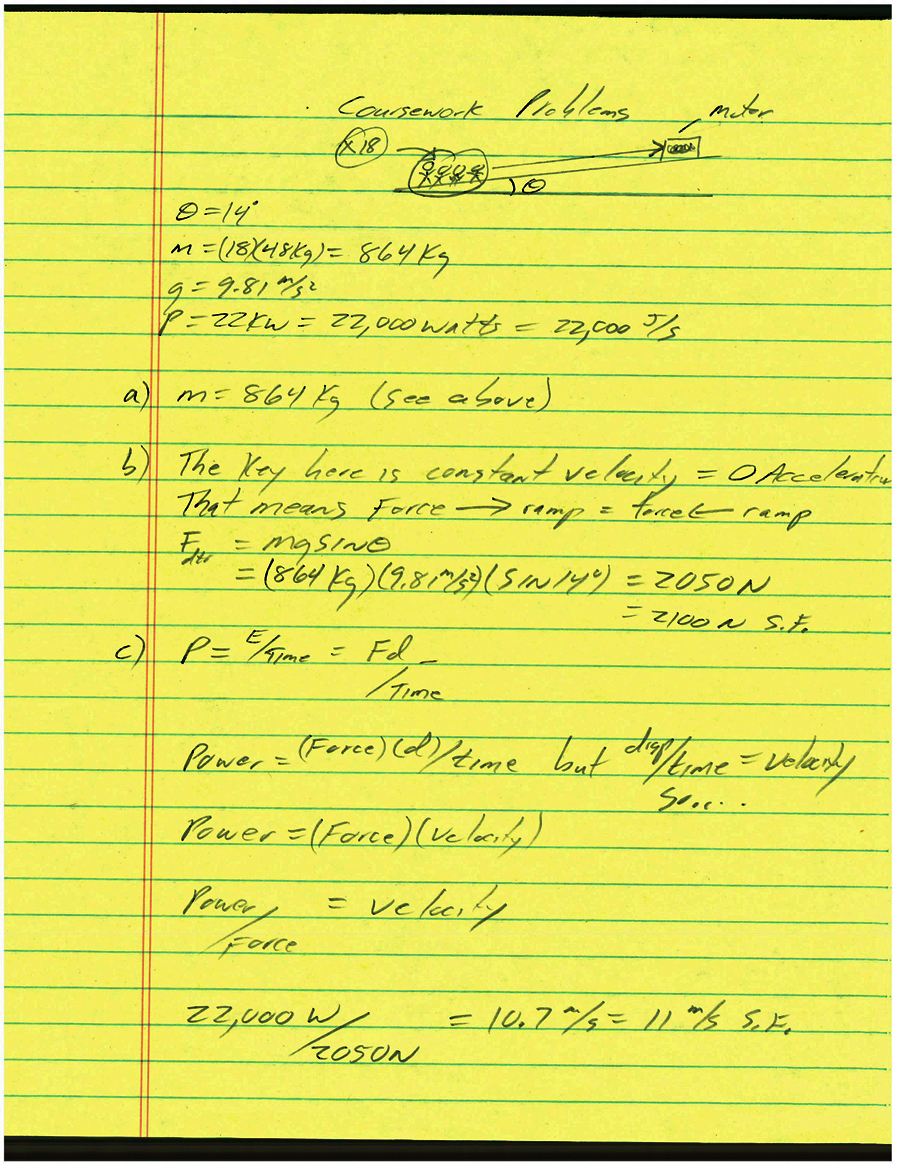 Coursework Problems
motor
x18
θ
θ = 14°
m = (18)(48Kg) = 864 Kg
g = 9.81 m/s²
P = 22Kw = 22,000 watts = 22,000 J/s
a) m = 864 Kg (see above)
b) The Key here is constant velocity = 0 Acceleration
That means Force → ramp = force ← ramp
F = mg sinθ
= (864 Kg)(9.81 m/s²)(SIN 14°) = 2050 N
= 2100 N S.F.
c) P = E/Time = Fd
/Time
Power = (Force)(d)/time but disp/time = velocity
So....
Power = (Force)(velocity)
Power = velocity
/Force
22,000 W = 10.7 m/s = 11 m/s S.F.
/2050N